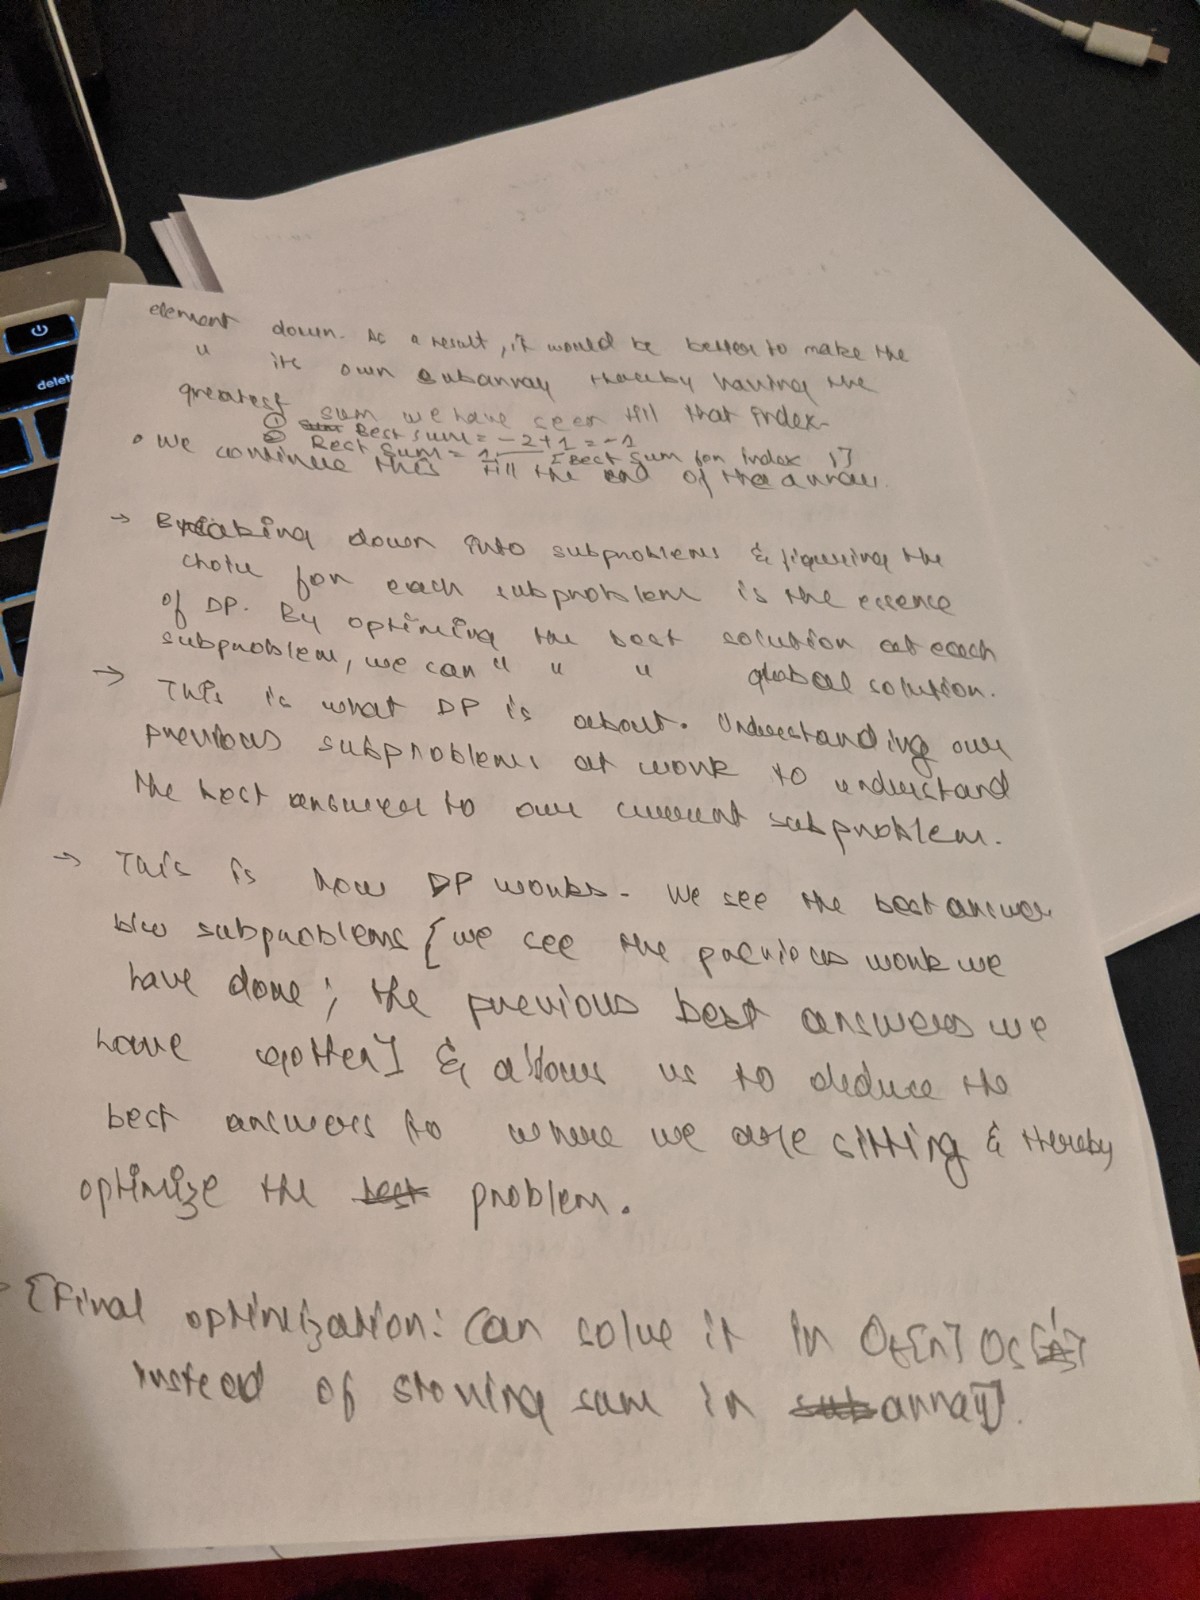 element down. As a result, it would be better to make the
" its own subarray thereby having the
greatest sum we have seen till that index.
① Best sum = -2+1 = -1
② Best Sum = 1. [Best sum for index 1]
• We continue this till the end of the array.
→ Breaking down into subproblems & figuring the
choice for each subproblem is the essence
of DP. By optimizing the best solution at each
subproblem, we can " " " global solution.
→ This is what DP is about. Understanding our
previous subproblems at work to understand
the best answer to our current subproblem.
→ This is how DP works. We see the best answer
b/w subproblems [we see the previous work we
have done; the previous best answers we
have gotten] & allows us to deduce the
best answers to where we are sitting & thereby
optimize the best problem.
[Final optimization: Can solve it in Ot[n] Os[1]
instead of storing sum in sub array].
delete